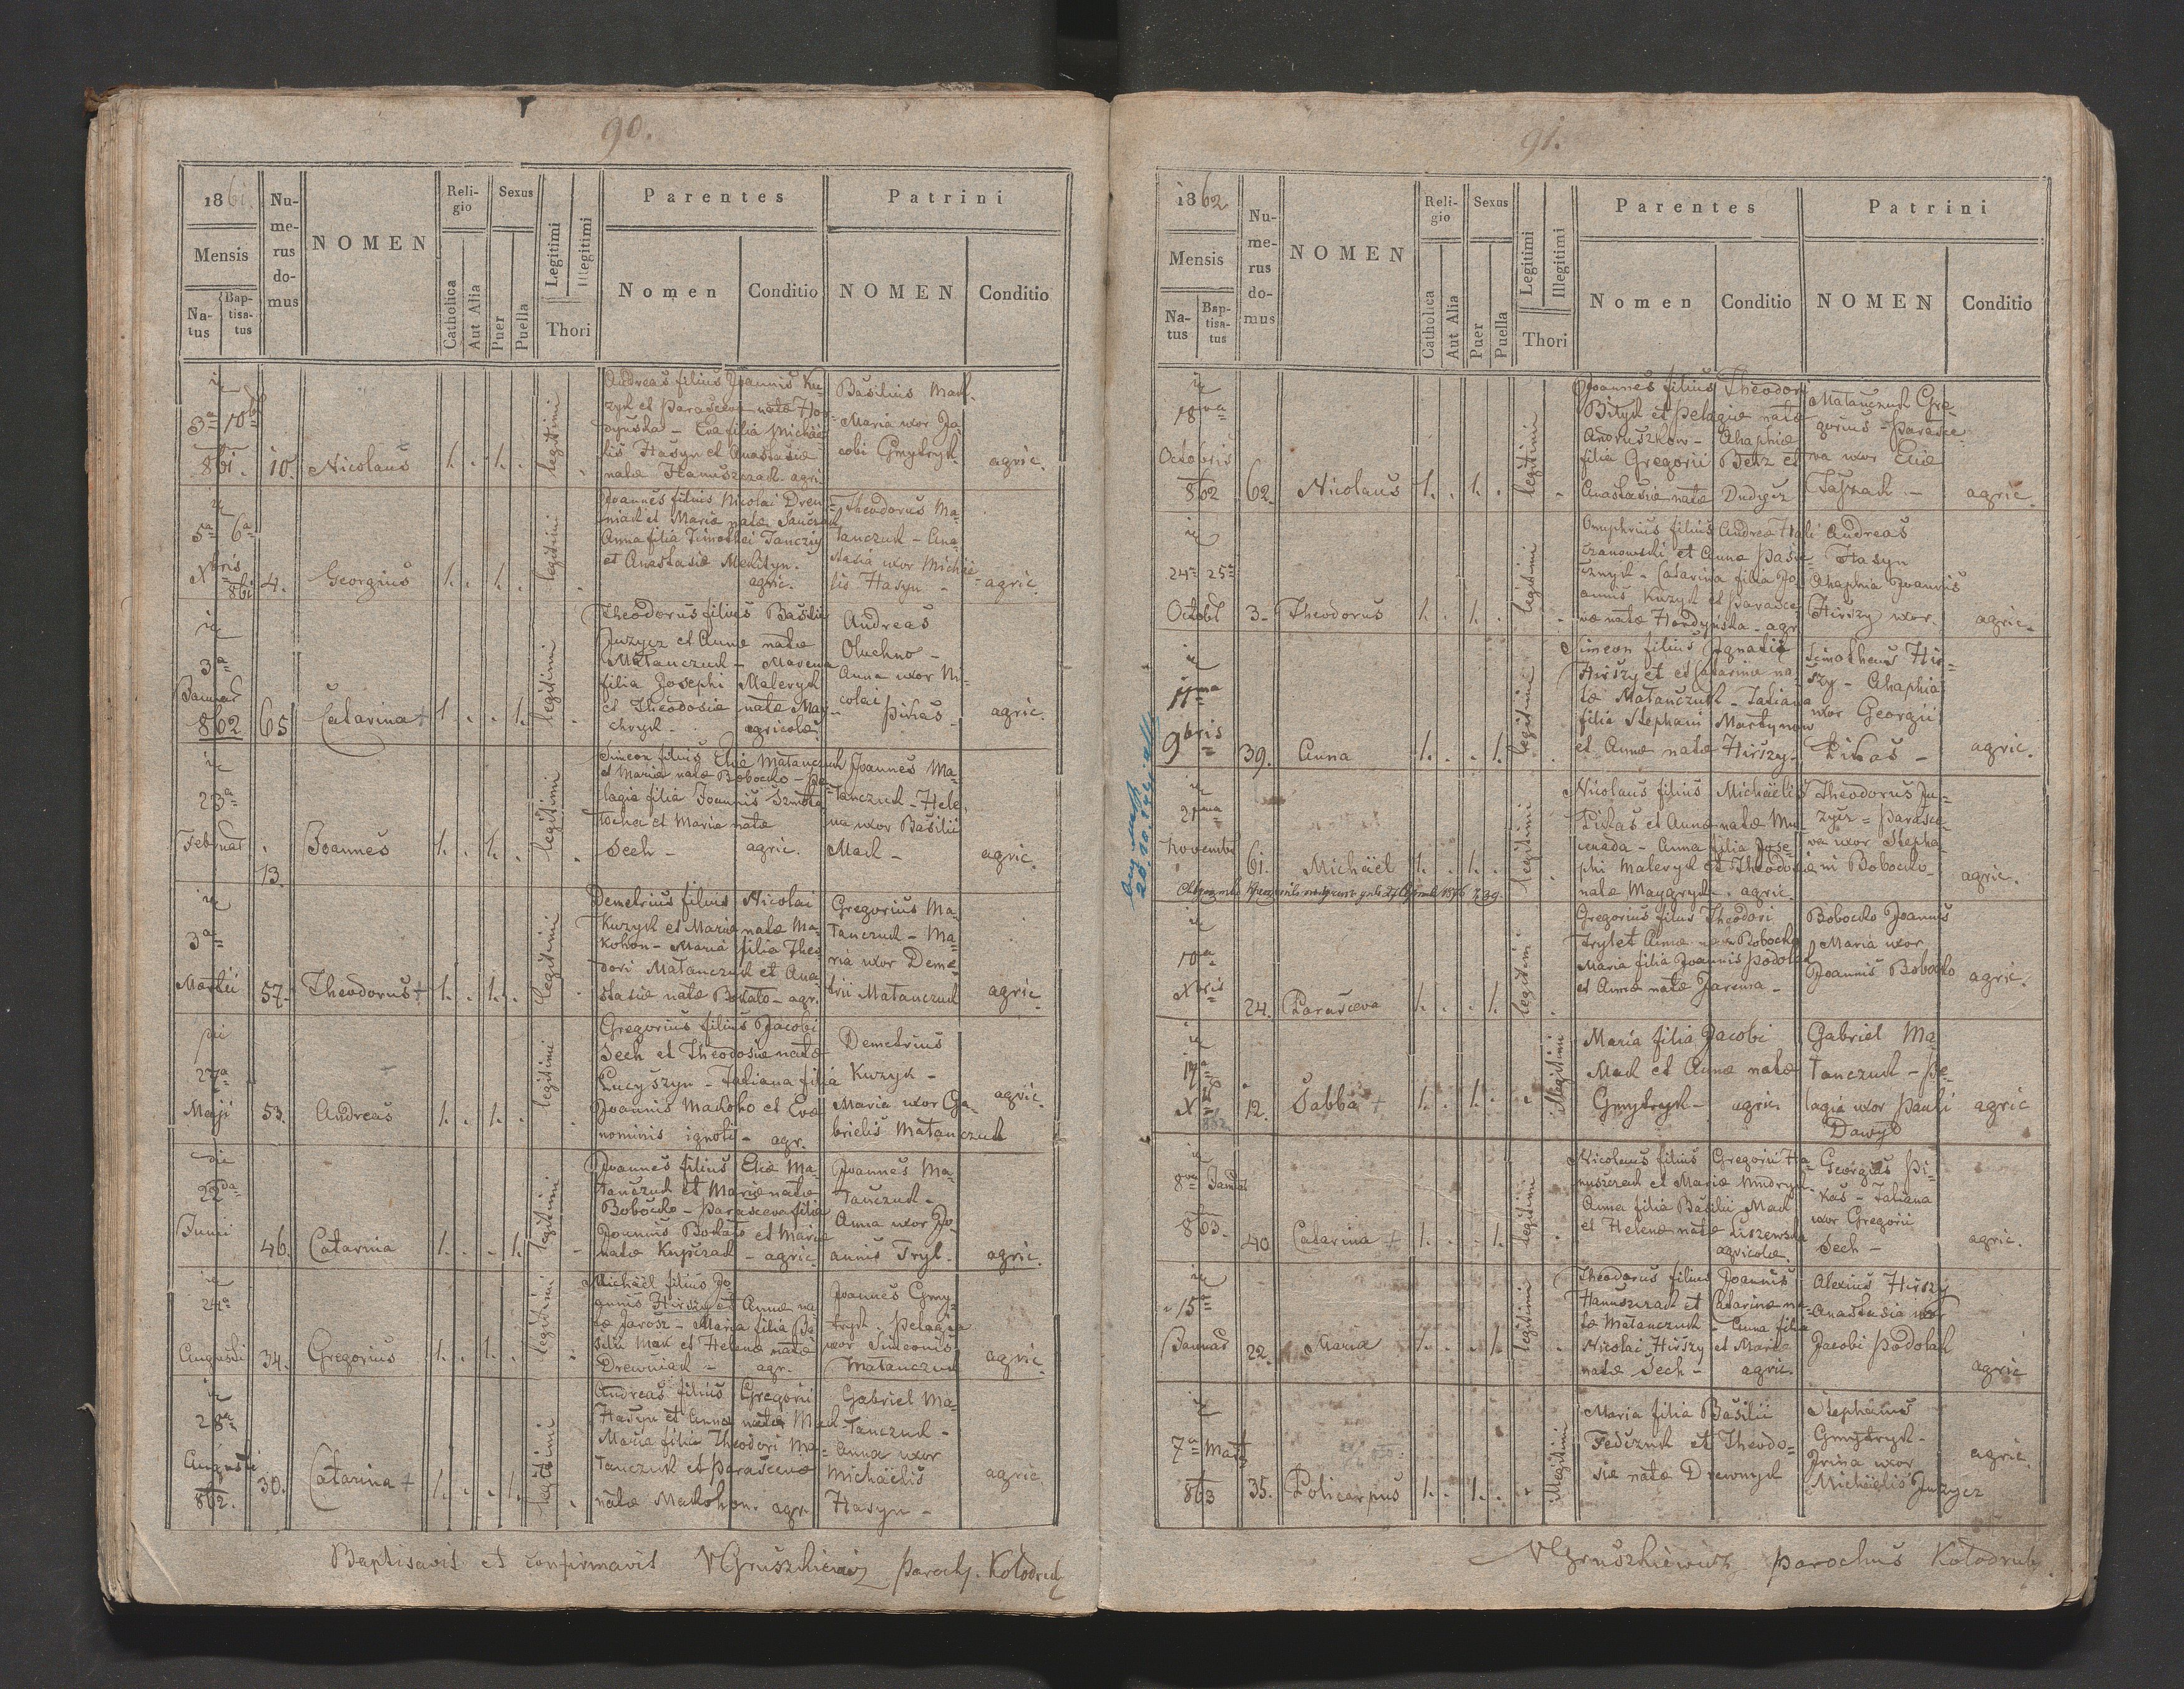 90.
1861.
Numerus domus
NOMEN
Religio
Sexus
Legitimi
Illegitimi
Parentes
Patrini
Mensis
Catholica
Aut Alia
Puer
Puella
Thori
Nomen
Conditio
NOMEN
Conditio
Natus
Baptisatus
3a 10b
861.
10.
Nicolaus
1. . 1. .
legitimi
Andreas filius Joannis Ku-
zyk et Parascevæ natæ Hor-
dynska - Eva filia Michae-
lis Hasyn et Anastasiæ
natæ Hanuszczak. agri.
Basilius Mak.
Maria uxor Ja-
cobi Gmytryk.
agric.
5a 6a
Xbris
861
4.
Georgius
1. . 1. .
legitimi
Joannes filius Nicolai Drew-
niak et Mariæ natæ
Anna filia Timothei
et Anastasiæ
agric.
Theodorus Ma-
tanczuk - Ana-
stasia uxor Michae-
lis Hasyn -
agric.
3a
Januar
862
65
Catarina +
1. . . 1.
legitimi
Theodorus filius Basilii
Juzycz et Annæ natæ
Matanczuk -
filia Josephi Maleryk
et Theodosiæ natæ
agricolæ
Andreas
Oluchno -
Anna uxor Ni-
colai Pikas -
agric.
23a
Februar
13.
Joannes
1. . 1. .
legitimi
Simeon filius Eliæ Matanczuk
et Mariæ natæ Bobocko - Pe-
lagia filia Joannis
et Maria natæ
Sech - agric.
Joannes Ma-
tanczuk - Hele-
na uxor Basilii
Mack -
agric.
3a
Martii
57.
Theodorus +
1. . 1. .
legitimi
Demetrius filius Nicolai
Kuzyk et Mariæ natæ Ma-
kohon - Maria filia Theo-
dori Matanczuk et Ana-
stasiæ natæ - agri.
Gregorius Ma-
tanczuk - Ma-
ria uxor Deme-
trii Matanczuk
agric.
27a
Maji
53.
Andreas
1. . 1. .
legitimi
Gregorius filius Jacobi
Sech et Theodosiæ natæ
Lucyszyn - Tatiana filia
Joannis Makoho et Evæ
nominis ignoti - agr.
Demetrius
Kuzyk -
Maria uxor Ga-
brielis Matanczuk
agric.
die
22da
Junii
46.
Catarina
1. . . 1.
legitimi
Joannes filius Eliæ Ma-
tanczuk et Mariæ natæ
Bobocko - Parasceva filia
Joannis et Mariæ
natæ Kupczak - agric.
Joannes Ma-
tanczuk -
Anna uxor Jo-
annis Tryl.
agric.
24a
Augusti
34.
Gregorius
1. . 1. .
legitimi
Michaël filius Jo-
annis Hirszy et Annæ na-
tæ Jarosz - Maria filia Ba-
silii Mak et Helenæ natæ
Drewniak - agr.
Joannes Gmy-
tryk. Pelagia
uxor Simeonis
Matanczuk
agric.
28a
Augusti
862.
30.
Catarina +
1. . . 1.
legitimi
Andreas filius Gregorii
Hasyn et Annæ natæ Mack
Maria filia Theodori Ma-
tanczuk et Parascevæ
natæ Makohon. agr.
Gabriel Ma-
tanczuk -
Anna uxor
Michaëlis
Hasyn -
agric.
Baptisavit et confirmavit VGruszkiewicz Paroch. Kołodrub
91.
1862
Numerus domus
NOMEN
Religio
Sexus
Legitimi
Illegitimi
Parentes
Patrini
Mensis
Catholica
Aut Alia
Puer
Puella
Thori
Nomen
Conditio
NOMEN
Conditio
Natus
Baptisatus
18va
Octobris
862
62.
Nicolaus
1. . 1. .
legitimi
Joannes filius Theodori
Bityk et Pelagiæ natæ
Andruszkow - Ahaphia
filia Gregorii Betz et
Anastasiæ natæ Dudycz
Matanczuk Gre-
gorius - Parasce-
va uxor Eliæ
agric.
24a 25a
Octobr
3.
Theodorus
1. . 1. .
legitimi
Onuphrius filius Andreæ Hali-
czanowski et Annæ
- Catarina filia Jo-
annis Kuzyk et Parasce-
væ natæ Hordynska - agr.
Andreas
Hasyn
Ahaphia Joannis
Hirszy uxor.
agric.
11ma
9bris
39.
Anna
1. . . 1.
legitimi
Simeon filius Ignatii
Hirszy et Catarinæ na-
tæ Matanczuk - Tatiana
filia Stephani Martynow
et Annæ natæ Hirszy -
Timotheus Hir-
szy - Ahaphia
uxor Georgii
Pikas -
agric.
21ma
Novembr
61.
Michaël
1. . 1. .
legitimi
Nicolaus filius Michaëlis
Pikas et Annæ natæ
- Anna filia Jose-
phi Maleryk et Theodosiæ
natæ - agric.
Theodorus Ju-
zycz - Parasce-
va uxor Stepha-
ni Bobocko -
agric.
10a
Xbris
24.
Parasceva
1. . . 1.
legitimi
Gregorius filius Theodori
Tryl et Annæ natæ Bobocko
Maria filia Joannis Podolak
et Annæ natæ Jarema -
Bobocko Joannis
Maria uxor
Joannis Bobocko
agric.
17a
X
862
12.
Sabba +
1. . 1. .
Illegitimi
Maria filia Jacobi
Mack et Annæ natæ
Gmytryk - agric.
Gabriel Ma-
tanczuk - Pe-
lagia uxor Pauli
Dawyd
agric
8va Januar
863.
40
Catarina +
1. . . 1.
legitimi
Nicolaus filius Gregorii Ha-
nuszczak et Mariæ
Anna filia Basilii Mack
et Helenæ natæ Liszewska
agricolæ
Georgius Pi-
kas - Tatiana
uxor Gregorii
Sech -
agric.
15a
Januar
22.
Maria
1. . . 1.
legitimi
Theodorus filius Joannis
Hanuszczak et Catarinæ na-
tæ Matanczuk - Anna filia
Nicolai Hirszy et Mariæ
natæ Sech - agric.
Alexius Hirszy
Anastasia uxor
Jacobi Podolak
agric
7a Martz
863
35.
Policarpus
1. . 1. .
Illegitimi
Maria filia Basilii
Fedczuk et Theodo-
siæ natæ Drewnyk
Stephanus
Gmytryk -
Irina uxor
Michaëlis Juzycz
agric.
VGruszkiewicz Parochus Kołodrub